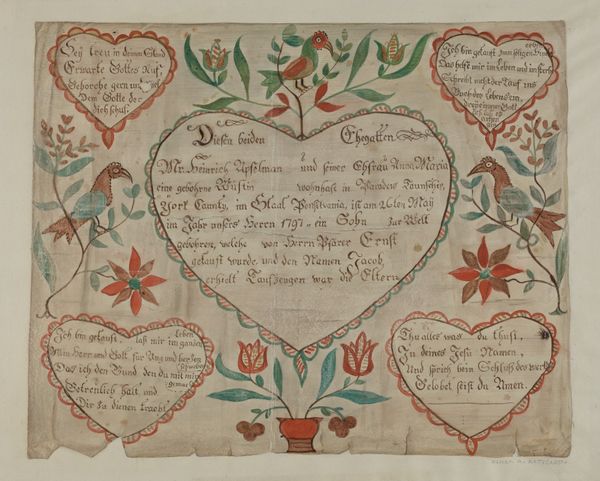 Sey treu in deinem Stand
Erwarte Gottes Ruf
Gehorche gern und
Dem Gotte der
dich schuf.
Ich bin getauft zum seligen
Das helft mir im Leben und im sterben
Schreibt nicht der Tauf ins
Buch des Lebens ein
Gott
Diesen beiden Ehegatten
Mr. Heinrich Upselman und seiner Ehsfrau Anna Maria
eine gebohrne Wüstin wohnhaft in Paradeis Taunschip,
York Caunty, im Staat Pensilvania, ist am 26ten May
im Jahr unsers Herrn 1797 ein Sohn zur Welt
gebohren, welche von Herrn Pfarer Ernst
getauft wurde und den Namen Jacob,
erhielt Taufzeugen war die Eltern
Ich bin getauft, laß mir im ganzen Leben
Mein Herr und Gott für Aug und herzen
Das ich den Bund den du mit mir
gemacht
Getreulich halt und
Dir zu dienen tracht
Thu alles was du thust,
In deines Jesu Namen,
Und sprich beim Schluß des werks
Gelobet seist du Amen.